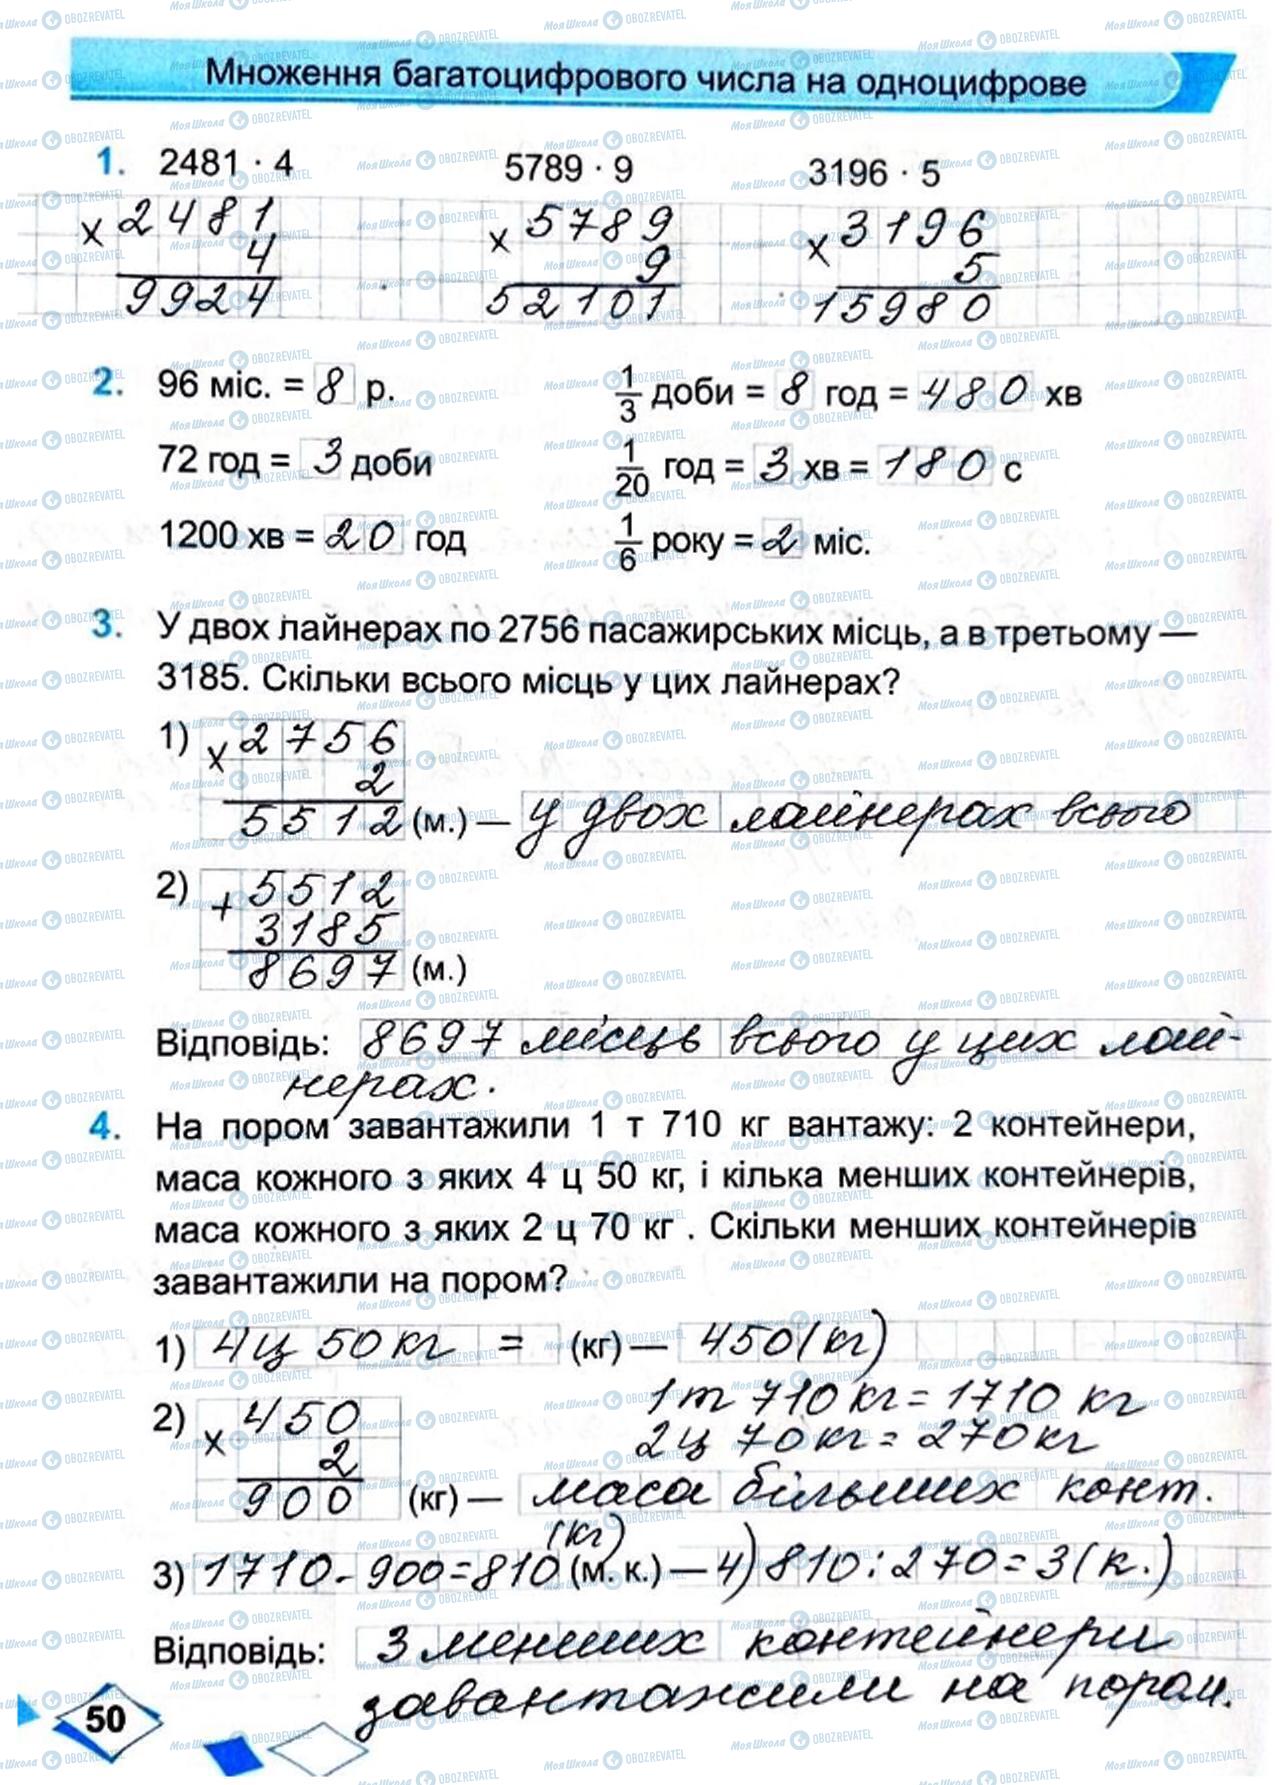 Множення багатоцифрового числа на одноцифрове
1. 2481 · 4 5789 · 9 3196 · 5
× 2481 × 5789 × 3196
4 9 5
9924 52101 15980
2. 96 міс. = 8 р. 1/3 доби = 8 год = 480 хв
72 год = 3 доби 1/20 год = 3 хв = 180 с
1200 хв = 20 год 1/6 року = 2 міс.
3. У двох лайнерах по 2756 пасажирських місць, а в третьому —
3185. Скільки всього місць у цих лайнерах?
1) × 2756
2
5512 (м.) — у двох лайнерах всього
2) + 5512
3185
8697 (м.)
Відповідь: 8697 місць всього у цих лай-
нерах.
4. На пором завантажили 1 т 710 кг вантажу: 2 контейнери,
маса кожного з яких 4 ц 50 кг, і кілька менших контейнерів,
маса кожного з яких 2 ц 70 кг . Скільки менших контейнерів
завантажили на пором?
1) 4 ц 50 кг = (кг) — 450 (кг)
1 т 710 кг = 1710 кг
2) × 450
2 2 ц 70 кг = 270 кг
900 (кг) — маса більших конт.
(кг)
3) 1710 - 900 = 810 (м. к.) — 4) 810 : 270 = 3 (к.)
Відповідь: 3 менших контейнери
завантажили на пором.
50
МояШкола OBOZREVATEL